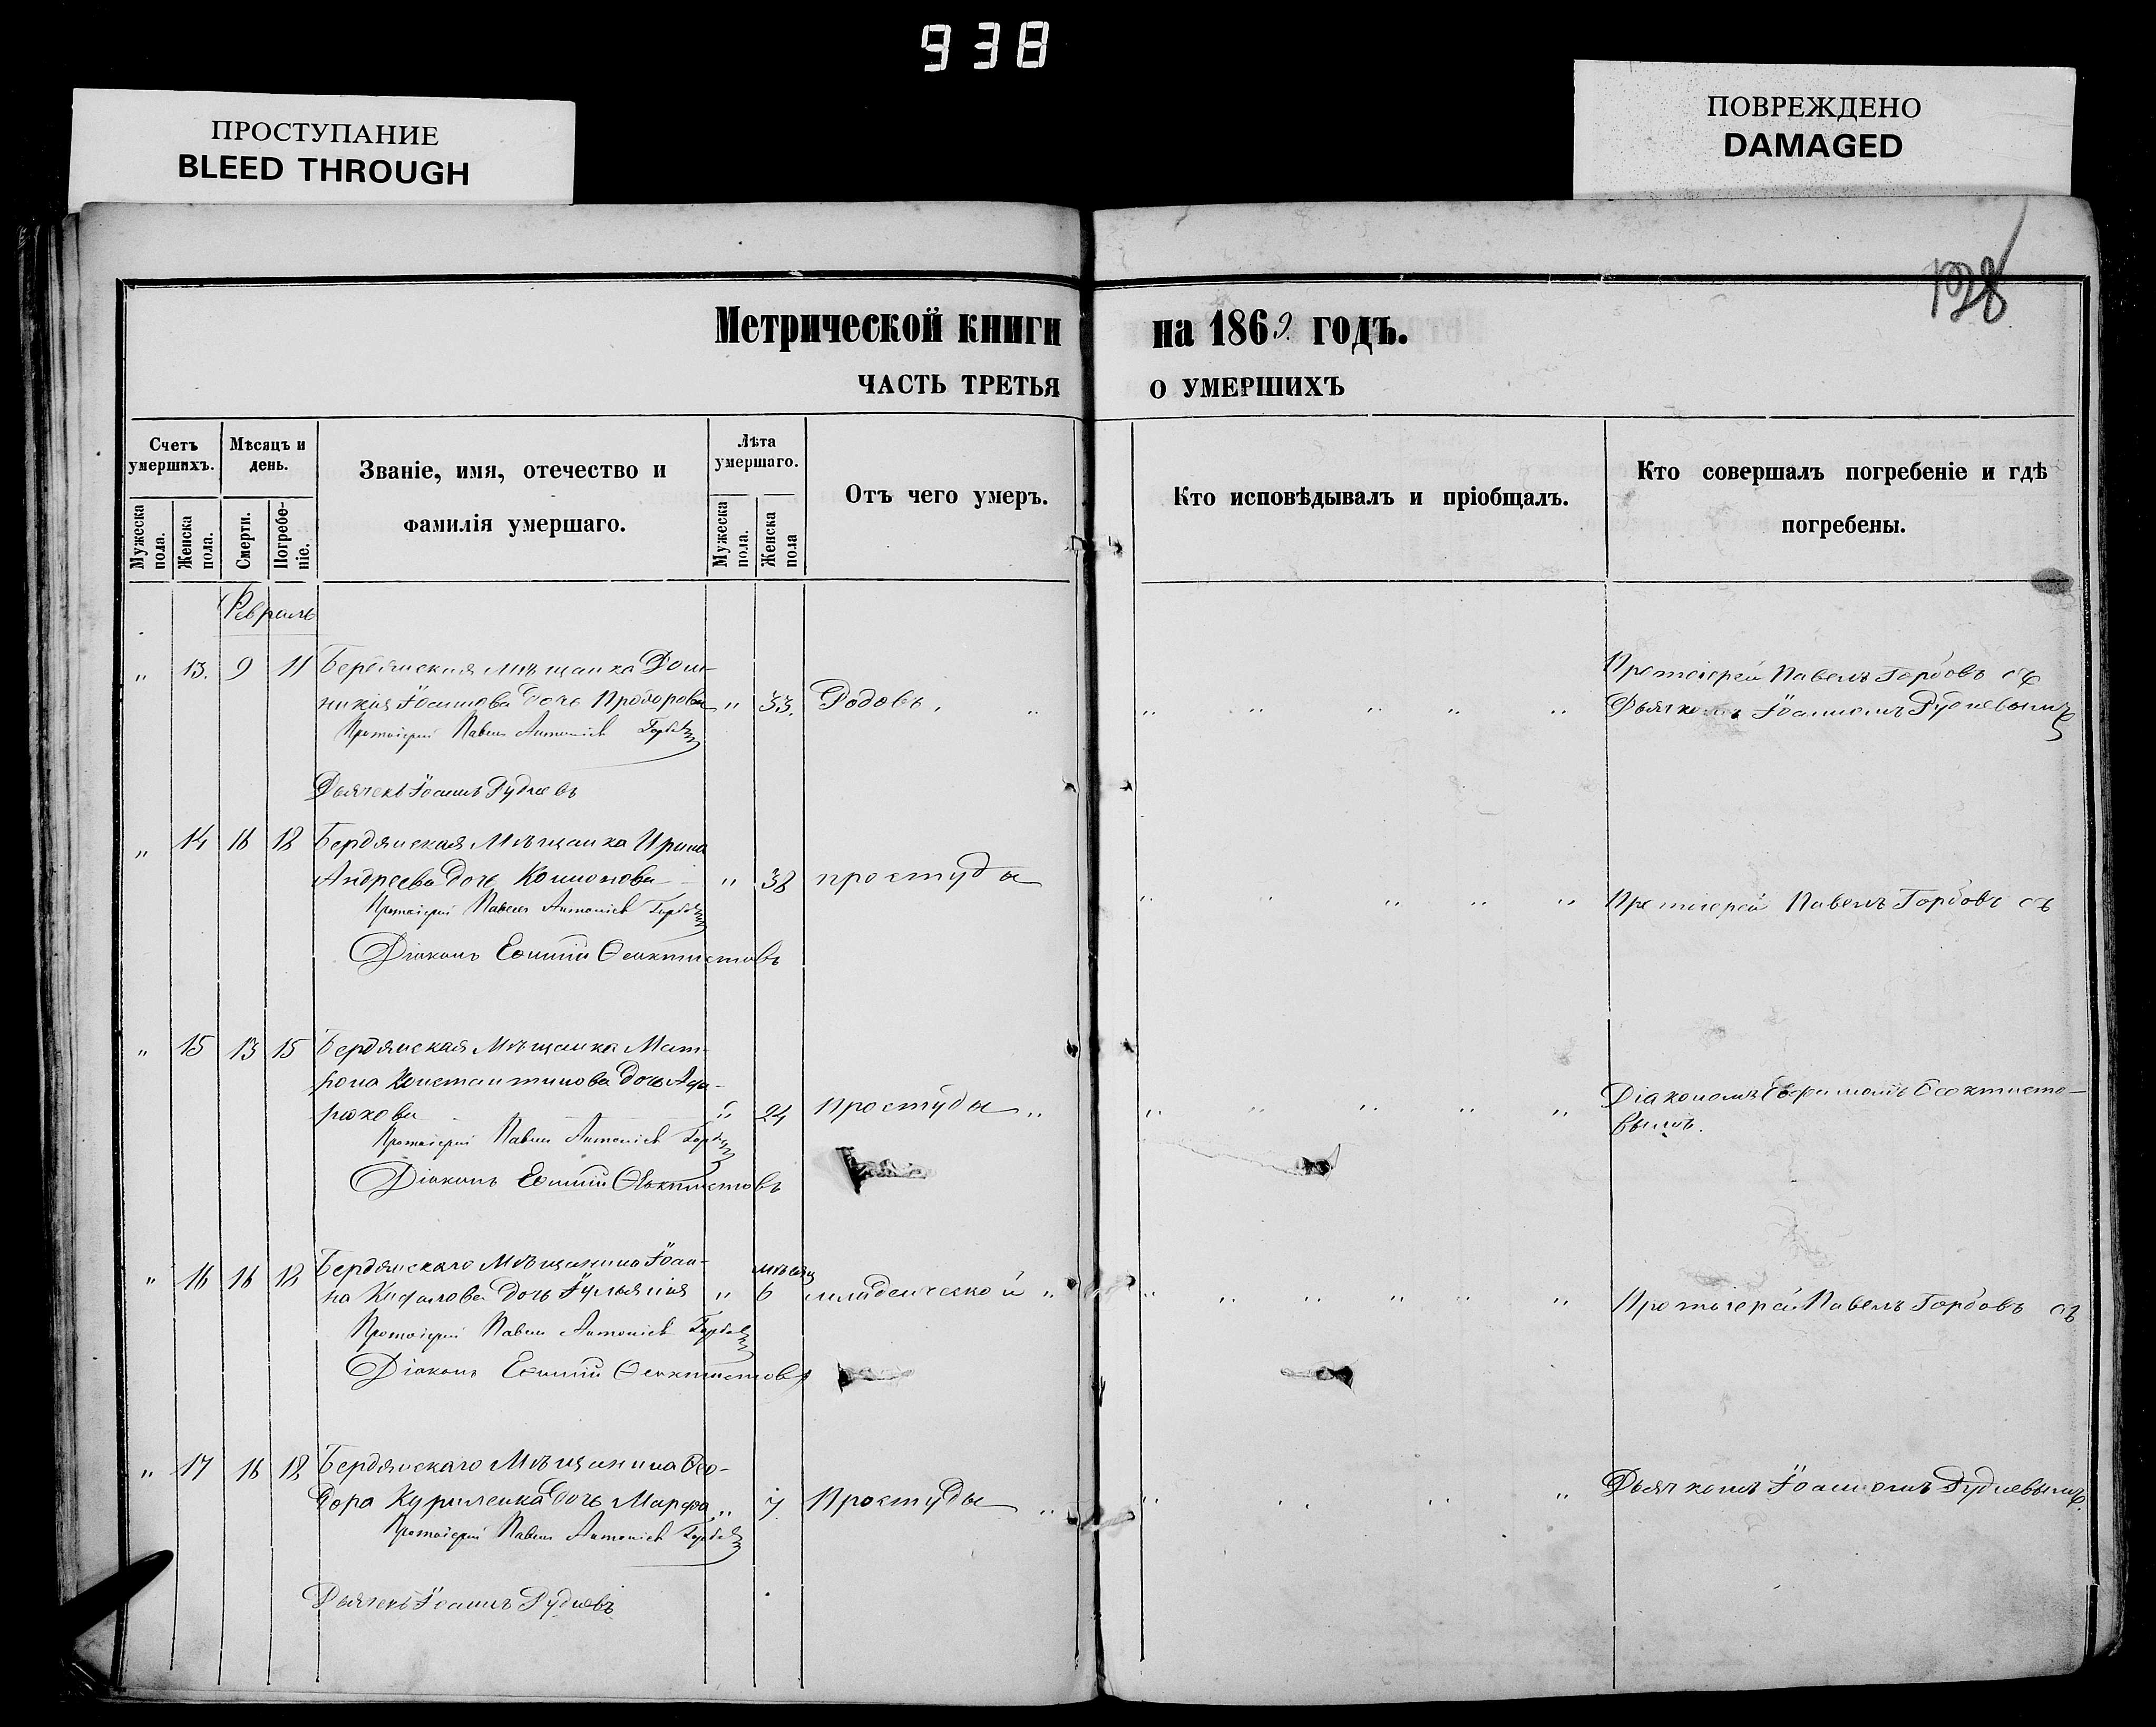 938
ПРОСТУПАНИЕ
BLEED THROUGH
ПОВРЕЖДЕНО
DAMAGED
Метрической книги на 1869 годъ.
ЧАСТЬ ТРЕТЬЯ О УМЕРШИХЪ
Счетъ умершихъ.
Мѣсяцъ и день.
Званіе, имя, отечество и фамилія умершаго.
Лѣта умершаго.
Отъ чего умеръ.
Кто исповѣдывалъ и пріобщалъ.
Кто совершалъ погребеніе и гдѣ погребены.
Мужеска пола.
Женска пола.
Смерти.
Погребеніе.
Мужеска пола.
Женска пола
Февраль
„ 13. 9 11 Бердянская мѣщанка Дом-
никія Іоаннова дочь Прохорова „ 33. Родовъ.
Протоіерей Павелъ Горбовъ съ
Дьячкомъ Іоанномъ Рудневымъ
Протоіерей Павелъ Антоніевъ Горбовъ
Дьячекъ Іоаннъ Рудневъ
„ 14 16 18 Бердянская Мѣщанка Ирина
Андреева дочь „ 38 простуды
Протоіерей Павелъ Горбовъ съ
Протоіерей Павелъ Антоніевъ Горбовъ
Діаконъ Еѳимій Ѳеоктистовъ
„ 15 13 15 Бердянская Мѣщанка Мат-
рона Константинова дочь
„ 24 Простуды „
Діакономъ Ефимомъ Ѳеоктисто-
вымъ.
Протоіерей Павелъ Антоніевъ Горбовъ
Діаконъ Еѳимій Ѳеоктистовъ
„ 16 16 18 Бердянскаго Мѣщанина Іоан-
на дочь Іульянія „ мѣсяц 6 младенческой „
Протоіерей Павелъ Горбовъ съ
Протоіерей Павелъ Антоніевъ Горбовъ
Діаконъ Еѳимій Ѳеоктистовъ
„ 17 16 18 Бердянскаго Мѣщанина Ѳео-
дора Куриленка дочь Марфа „ 7. Простуды „
Дьячкомъ Іоанномъ Рудневымъ.
Протоіерей Павелъ Антоніевъ Горбовъ
Дьячекъ Іоаннъ Рудневъ